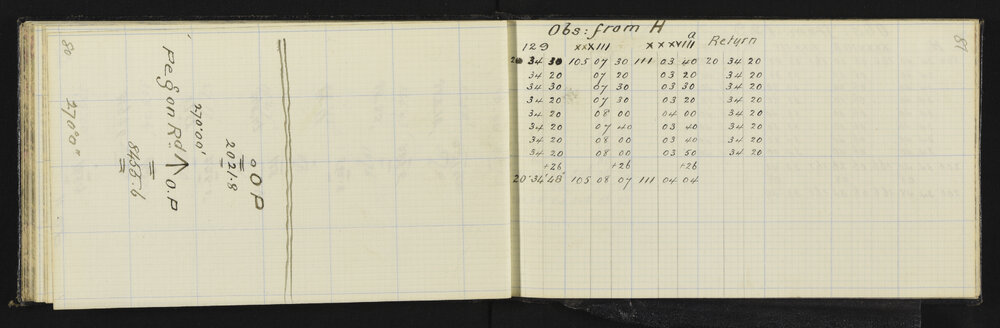 80
270°0"
Peg on Rd ↑ O.P
8458.6
270°00'
2021.8
OP
81
Obs: from H
129 XXXIII XXXVIII a Return
20 34 30 105 07 30 111 03 40 20 34 20
34 20 07 20 03 20 34 20
34 30 07 30 03 30 34 20
34 20 07 30 03 20 34 20
34 20 08 00 04 00 34 20
34 20 07 40 03 40 34 20
34 20 08 00 03 40 34 20
34 20 08 00 03 50 34 20
+26 +26 +26
20° 34' 48" 105 08 07 111 04 04